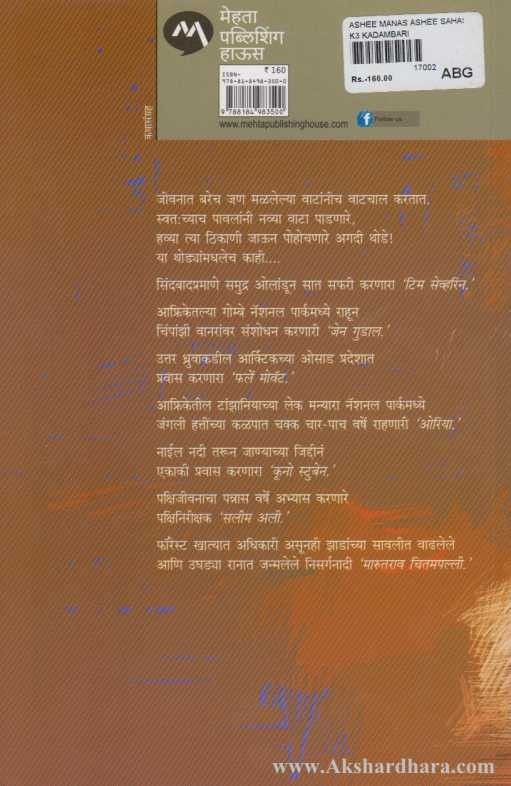 मेहता
पब्लिशिंग
हाऊस
₹ 160
ISBN-
978-81-8498-300-0
9 788184 983500
www.mehtapublishinghouse.com
Follow us
ASHEE MANAS ASHEE SAHAS
K3 KADAMBARI
17002
Rs.-160.00
ABG
कथासंग्रह
जीवनात बरेच जण मळलेल्या वाटांनीच वाटचाल करतात.
स्वत:च्याच पावलांनी नव्या वाटा पाडणारे,
हव्या त्या ठिकाणी जाऊन पोहोचणारे अगदी थोडे!
या थोड्यांमधलेच काही....
सिंदबादप्रमाणे समुद्र ओलांडून सात सफरी करणारा ‘टिम सेव्हरिन.’
आफ्रिकेतल्या गोम्बे नॅशनल पार्कमध्ये राहून
चिंपांझी वानरांवर संशोधन करणारी ‘जेन गुडाल.’
उत्तर ध्रुवाकडील आर्क्टिकच्या ओसाड प्रदेशात
प्रवास करणारा ‘फर्ले मोवॅट.’
आफ्रिकेतील टांझानियाच्या लेक मन्यारा नॅशनल पार्कमध्ये
जंगली हत्तींच्या कळपात चक्क चार-पाच वर्षे राहणारी ‘ओरिया.’
नाईल नदी तरून जाण्याच्या जिद्दीनं
एकाकी प्रवास करणारा ‘कूनो स्टुबेन.’
पक्षिजीवनाचा पन्नास वर्षे अभ्यास करणारे
पक्षिनिरीक्षक ‘सलीम अली.’
फॉरेस्ट खात्यात अधिकारी असूनही झाडांच्या सावलीत वाढलेले
आणि उघड्या रानात जन्मलेले निसर्गनादी ‘मारुतराव चितमपल्ली.’
www.Akshardhara.com